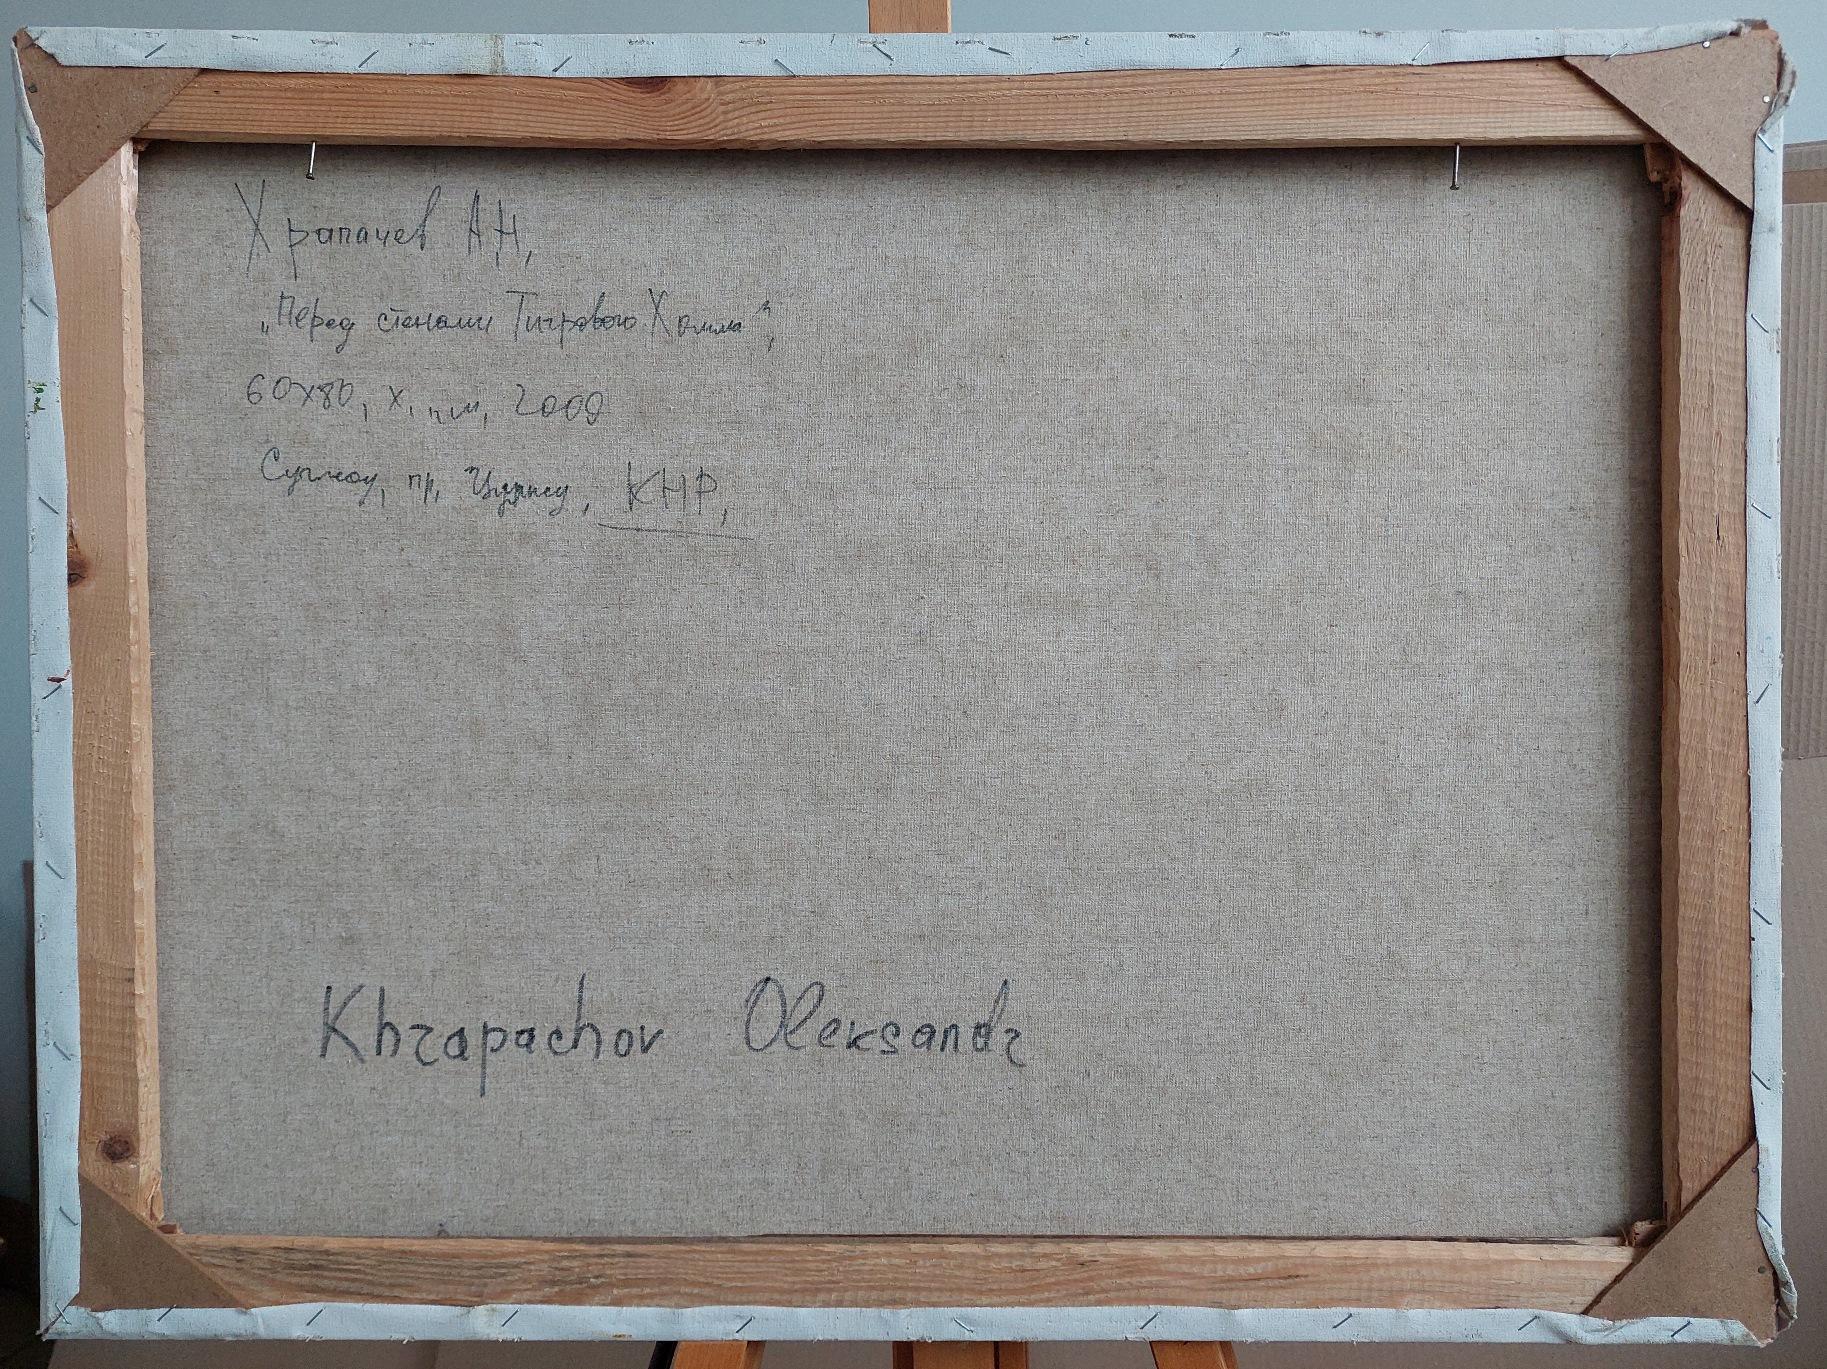 Храпачев АН,
„Перед стенами Тигрового Холма”,
60х80, х. м, 2009
Сучжоу, пр. КНР,
Khrapachov Oleksandr